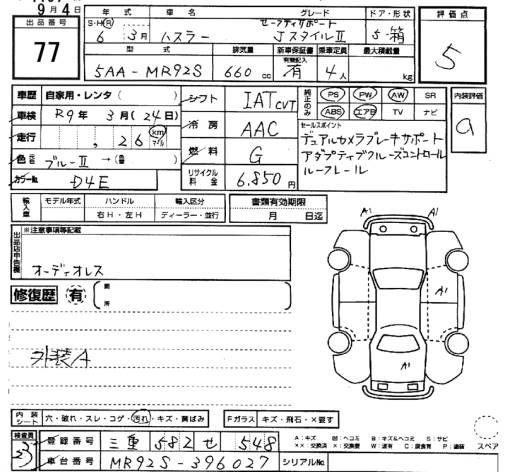 9月4日
出品番号
77
年式 車名 グレード ドア・形状 評価点
S・H・R 6 年 3月 ハスラー セーフティサポート JスタイルⅡ 5・箱 5
型式 排気量 新車保証書 乗車定員 最大積載量
5AA-MR92S 660cc 有 4人 kg
車歴 自家用・レンタ( ) シフト IAT CVT 純正のみ PS PW AW SR 内装評価
車検 R9年3月(24日) ABS エアB TV ナビ a
走行 , 26 km マイル 冷房 AAC セールスポイント
色 ブルーⅡ→( ) 燃料 G デュアルカメラブレーキサポート
アダプティブクルーズコントロール
ルーフレール
カラーNo. D4E リサイクル料金 6,850円
輸入車 モデル年式 ハンドル 輸入区分 書類有効期限
右H・左H ディーラー・並行 月 日迄
出品店申告欄 ※注意事項等記載
オーディオレス
修復歴 有 箇所
外装A
A1
A1
A1
内装シート 穴・破れ・スレ・コゲ・汚れ・キズ・黄ばみ Fガラス キズ・飛石・X要す
検査員 登録番号 三重 582 せ 548
車台番号 MR92S-396027 シリアルNo.
A:キズ U:ヘコミ B:キズ&ヘコミ S:サビ
XX:交換済 X:交換要 W:波有 C:腐食有 P:塗装 スペア